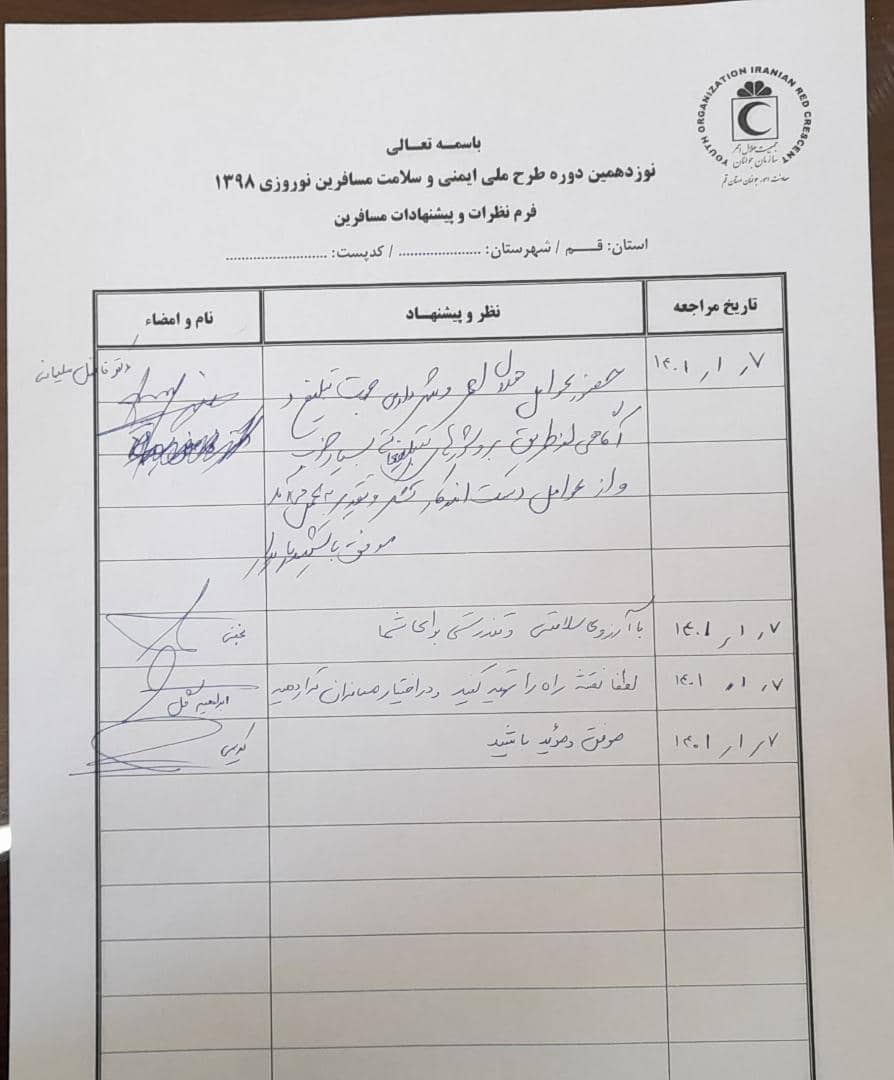 YOUTH ORGANIZATION IRANIAN RED CRESCENT
جمعیت هلال احمر
سازمان جوانان
معاونت امور جوانان استان قم
باسمه تعالی
نوزدهمین دوره طرح ملی ایمنی و سلامت مسافرین نوروزی ۱۳۹۸
فرم نظرات و پیشنهادات مسافرین
استان: قم / شهرستان: ..................... / کدپست: ..........................
تاریخ مراجعه نظر و پیشنهاد نام و امضاء
۱۴۰۱/۱/۷ حضور عوامل هلال احمر جهت تبلیغ و
آگاهی از طریق بروشورهای تبلیغاتی بسیار خوب
و از عوامل دست اندکار تشکر و تقدیر به عمل می‌آید
موفق باشید
۱۴۰۱/۱/۷ با آرزوی سلامتی و تندرستی برای شما
۱۴۰۱/۱/۷ لطفا نقشه راه را تهیه کنید و در اختیار مسافران قرار دهید
۱۴۰۱/۱/۷ موفق و مؤید باشید